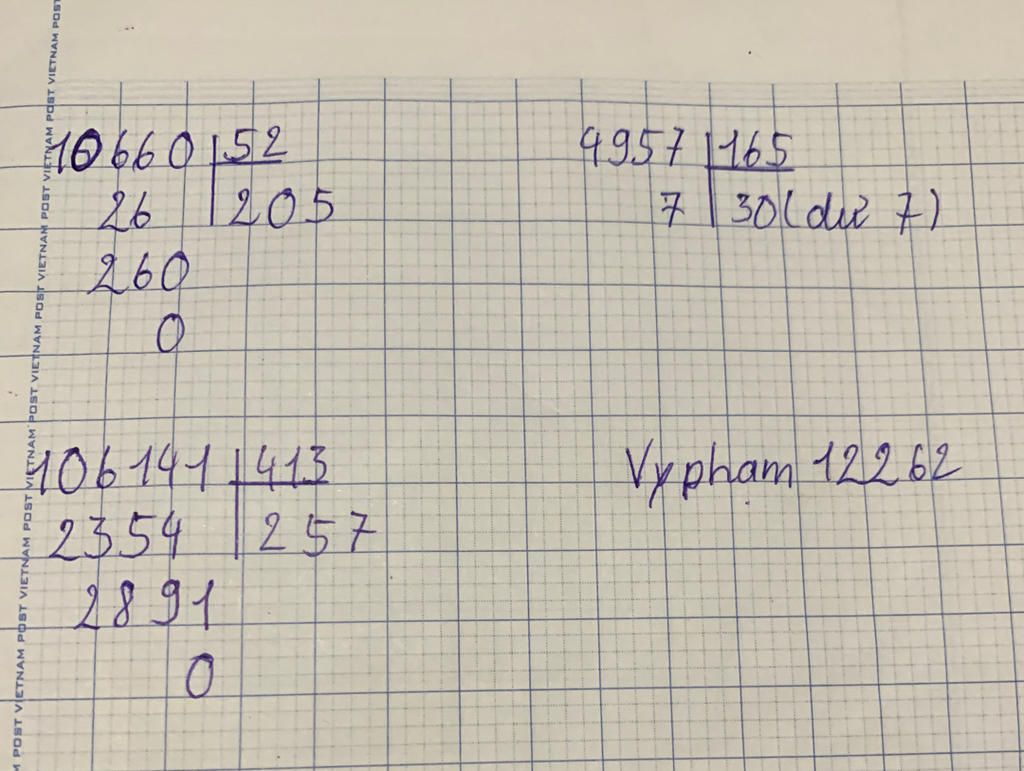 10660 52
26 205
260
0
4957 165
7 30 (dư 7)
106141 413
2354 257
2891
0
Vypham 12262
VIETNAM POST VIETNAM POST VIETNAM POST VIETNAM POST VIETNAM POST VIETNAM POST VIETNAM POST